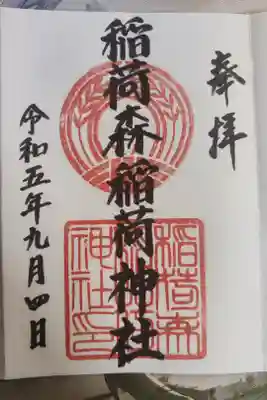 奉拝
稲荷森稲荷神社
令和五年九月四日
稲荷森
稲荷神
社印